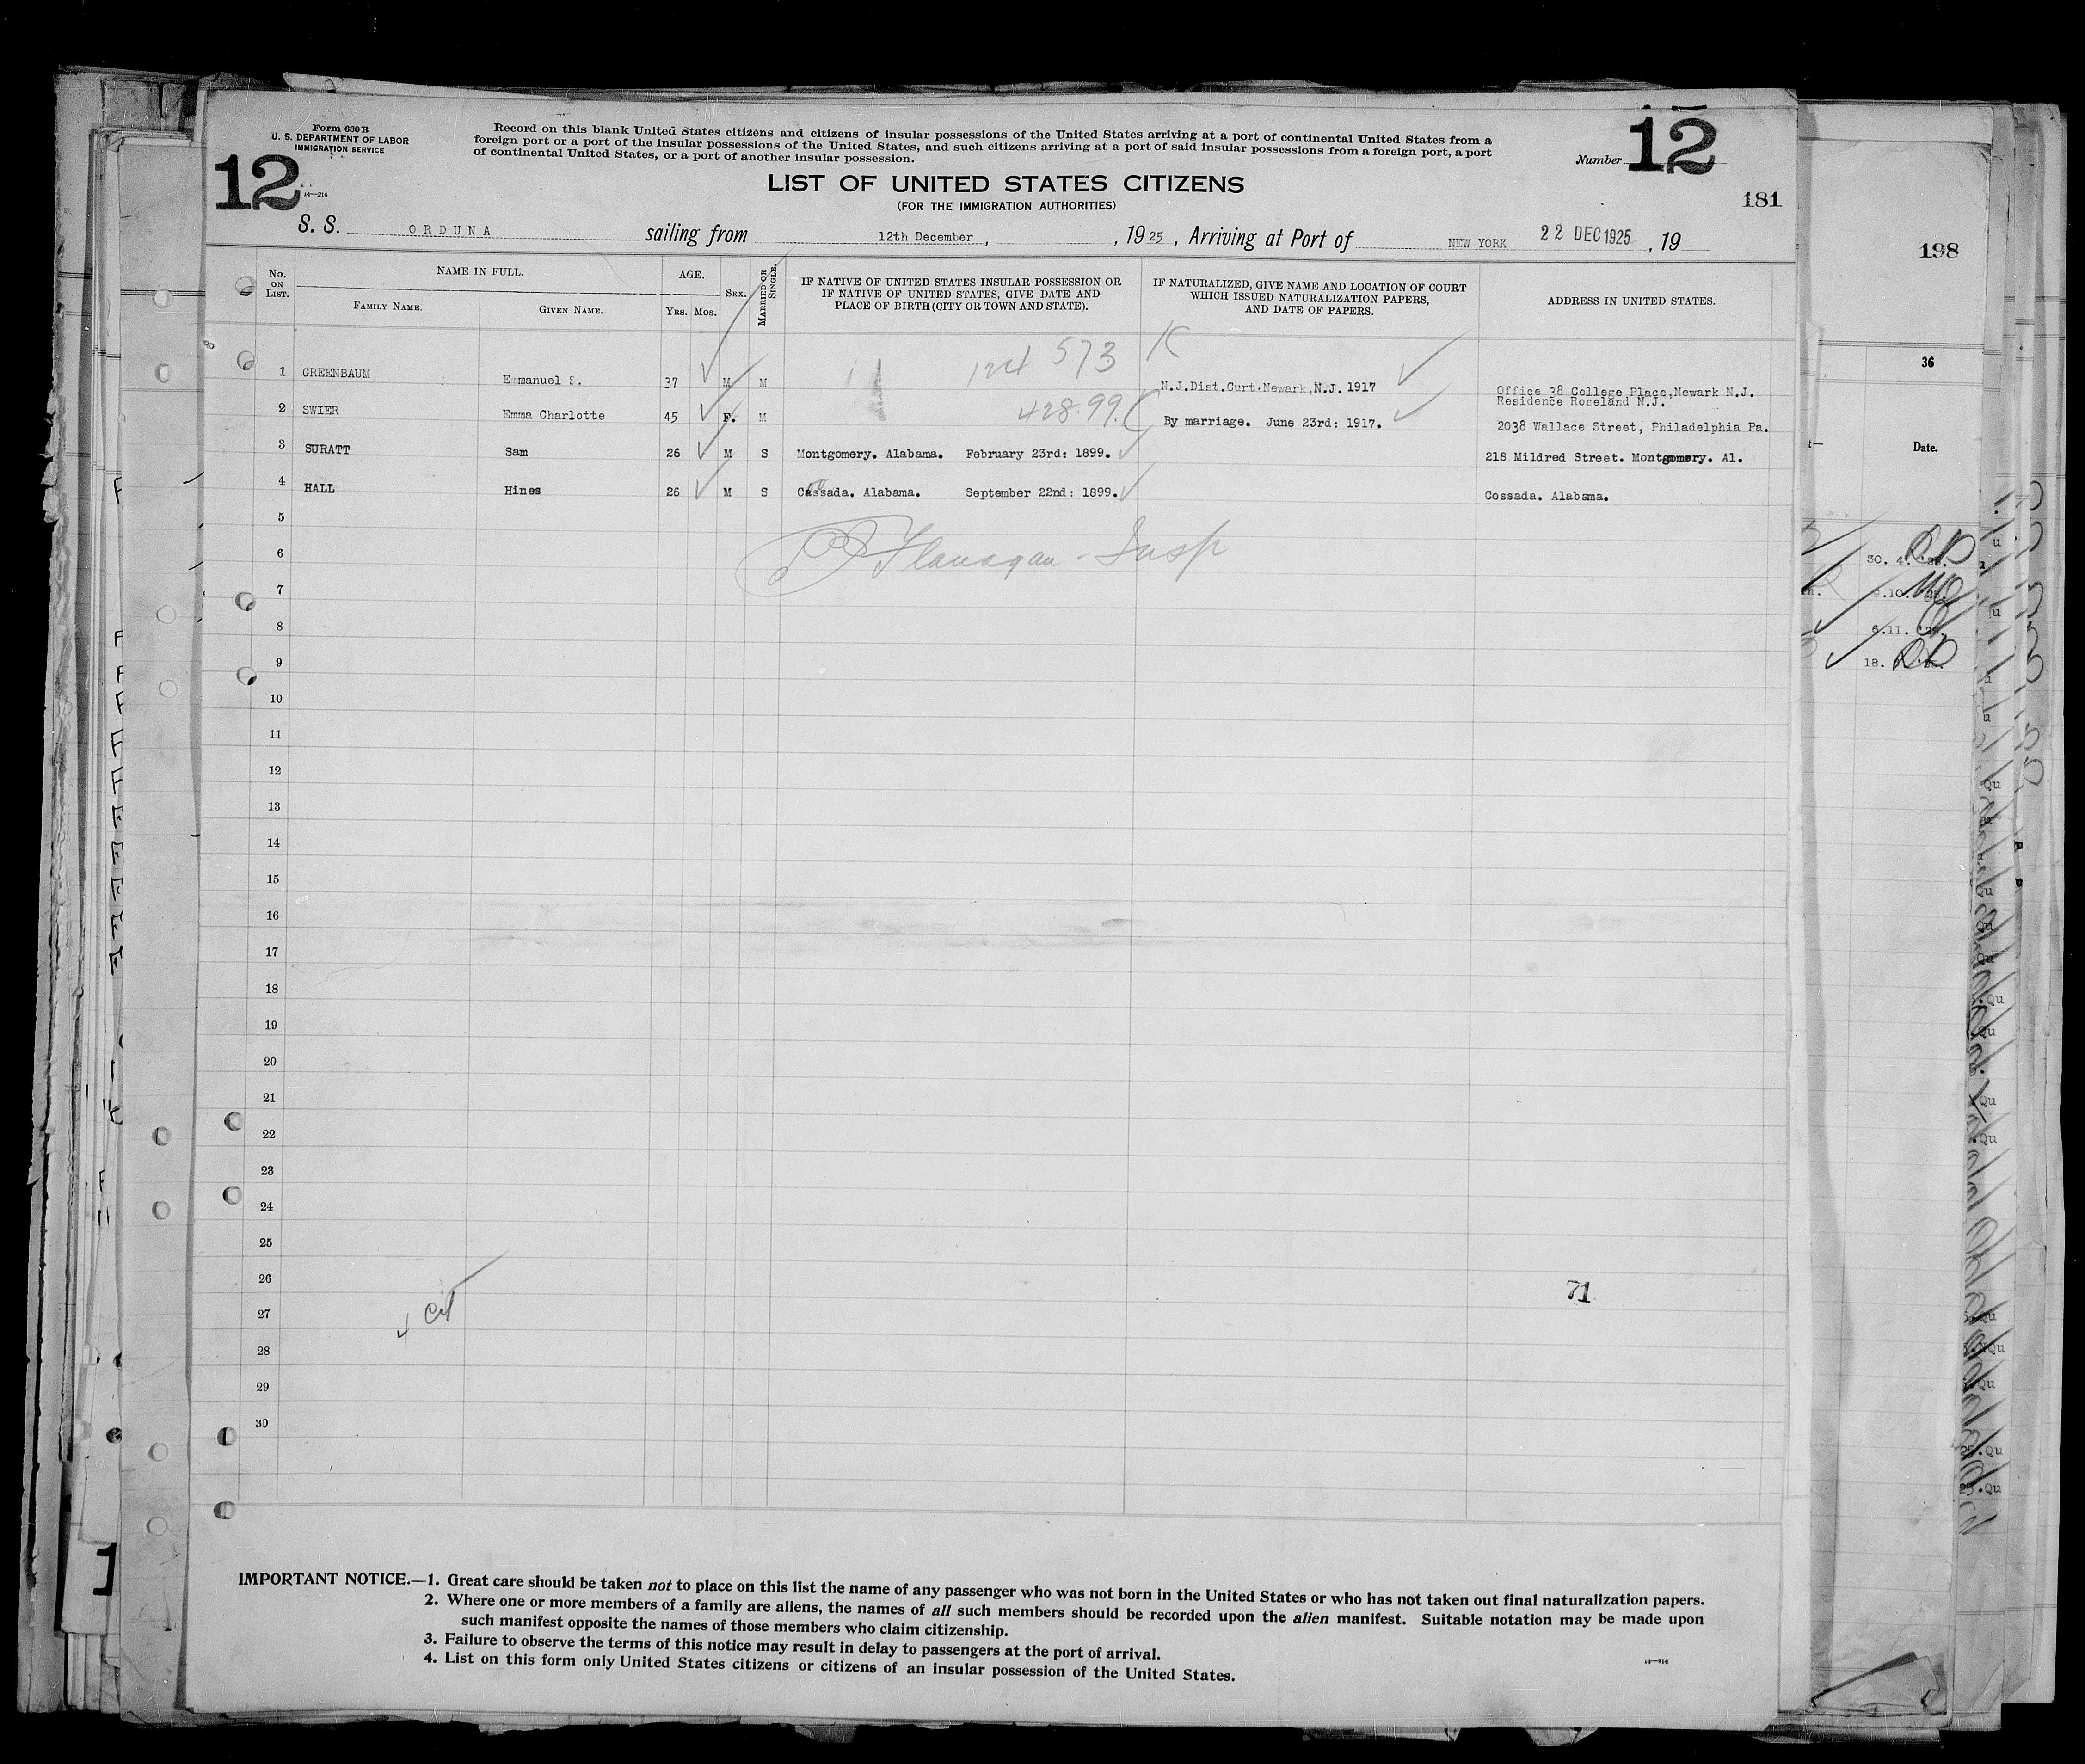 Form 630 B
U. S. DEPARTMENT OF LABOR
IMMIGRATION SERVICE
12
14—214
Record on this blank United States citizens and citizens of insular possessions of the United States arriving at a port of continental United States from a
foreign port or a port of the insular possessions of the United States, and such citizens arriving at a port of said insular possessions from a foreign port, a port
of continental United States, or a port of another insular possession.
Number 12
LIST OF UNITED STATES CITIZENS
(FOR THE IMMIGRATION AUTHORITIES)
181
S. S. ORDUNA sailing from 12th December, , 1925, Arriving at Port of NEW YORK 22 DEC 1925, 19
No. ON LIST. NAME IN FULL. FAMILY NAME. GIVEN NAME. AGE. YRS. MOS. SEX. MARRIED OR SINGLE.
IF NATIVE OF UNITED STATES INSULAR POSSESSION OR
IF NATIVE OF UNITED STATES, GIVE DATE AND
PLACE OF BIRTH (CITY OR TOWN AND STATE).
IF NATURALIZED, GIVE NAME AND LOCATION OF COURT
WHICH ISSUED NATURALIZATION PAPERS,
AND DATE OF PAPERS.
ADDRESS IN UNITED STATES.
124 573 K
1 GREENBAUM Emmanuel S. 37 M M N.J.Dist.Curt.Newark,N.J. 1917 Office 38 College Place,Newark N.J.
Residence Roseland N.J.
428.99.
2 SWIER Emma Charlotte 45 F. M By marriage. June 23rd: 1917. 2038 Wallace Street, Philadelphia Pa.
3 SURATT Sam 26 M S Montgomery. Alabama. February 23rd: 1899. 218 Mildred Street. Montgomery. Al.
4 HALL Hines 26 M S Cassada. Alabama. September 22nd: 1899. Cossada. Alabama.
5
6
Flanagan - Insp
7
8
9
10
11
12
13
14
15
16
17
18
19
20
21
22
23
24
25
26
71
27
4 cit
28
29
30
IMPORTANT NOTICE.—1. Great care should be taken not to place on this list the name of any passenger who was not born in the United States or who has not taken out final naturalization papers.
2. Where one or more members of a family are aliens, the names of all such members should be recorded upon the alien manifest. Suitable notation may be made upon
such manifest opposite the names of those members who claim citizenship.
3. Failure to observe the terms of this notice may result in delay to passengers at the port of arrival.
4. List on this form only United States citizens or citizens of an insular possession of the United States.
14—214
198
36
Date.